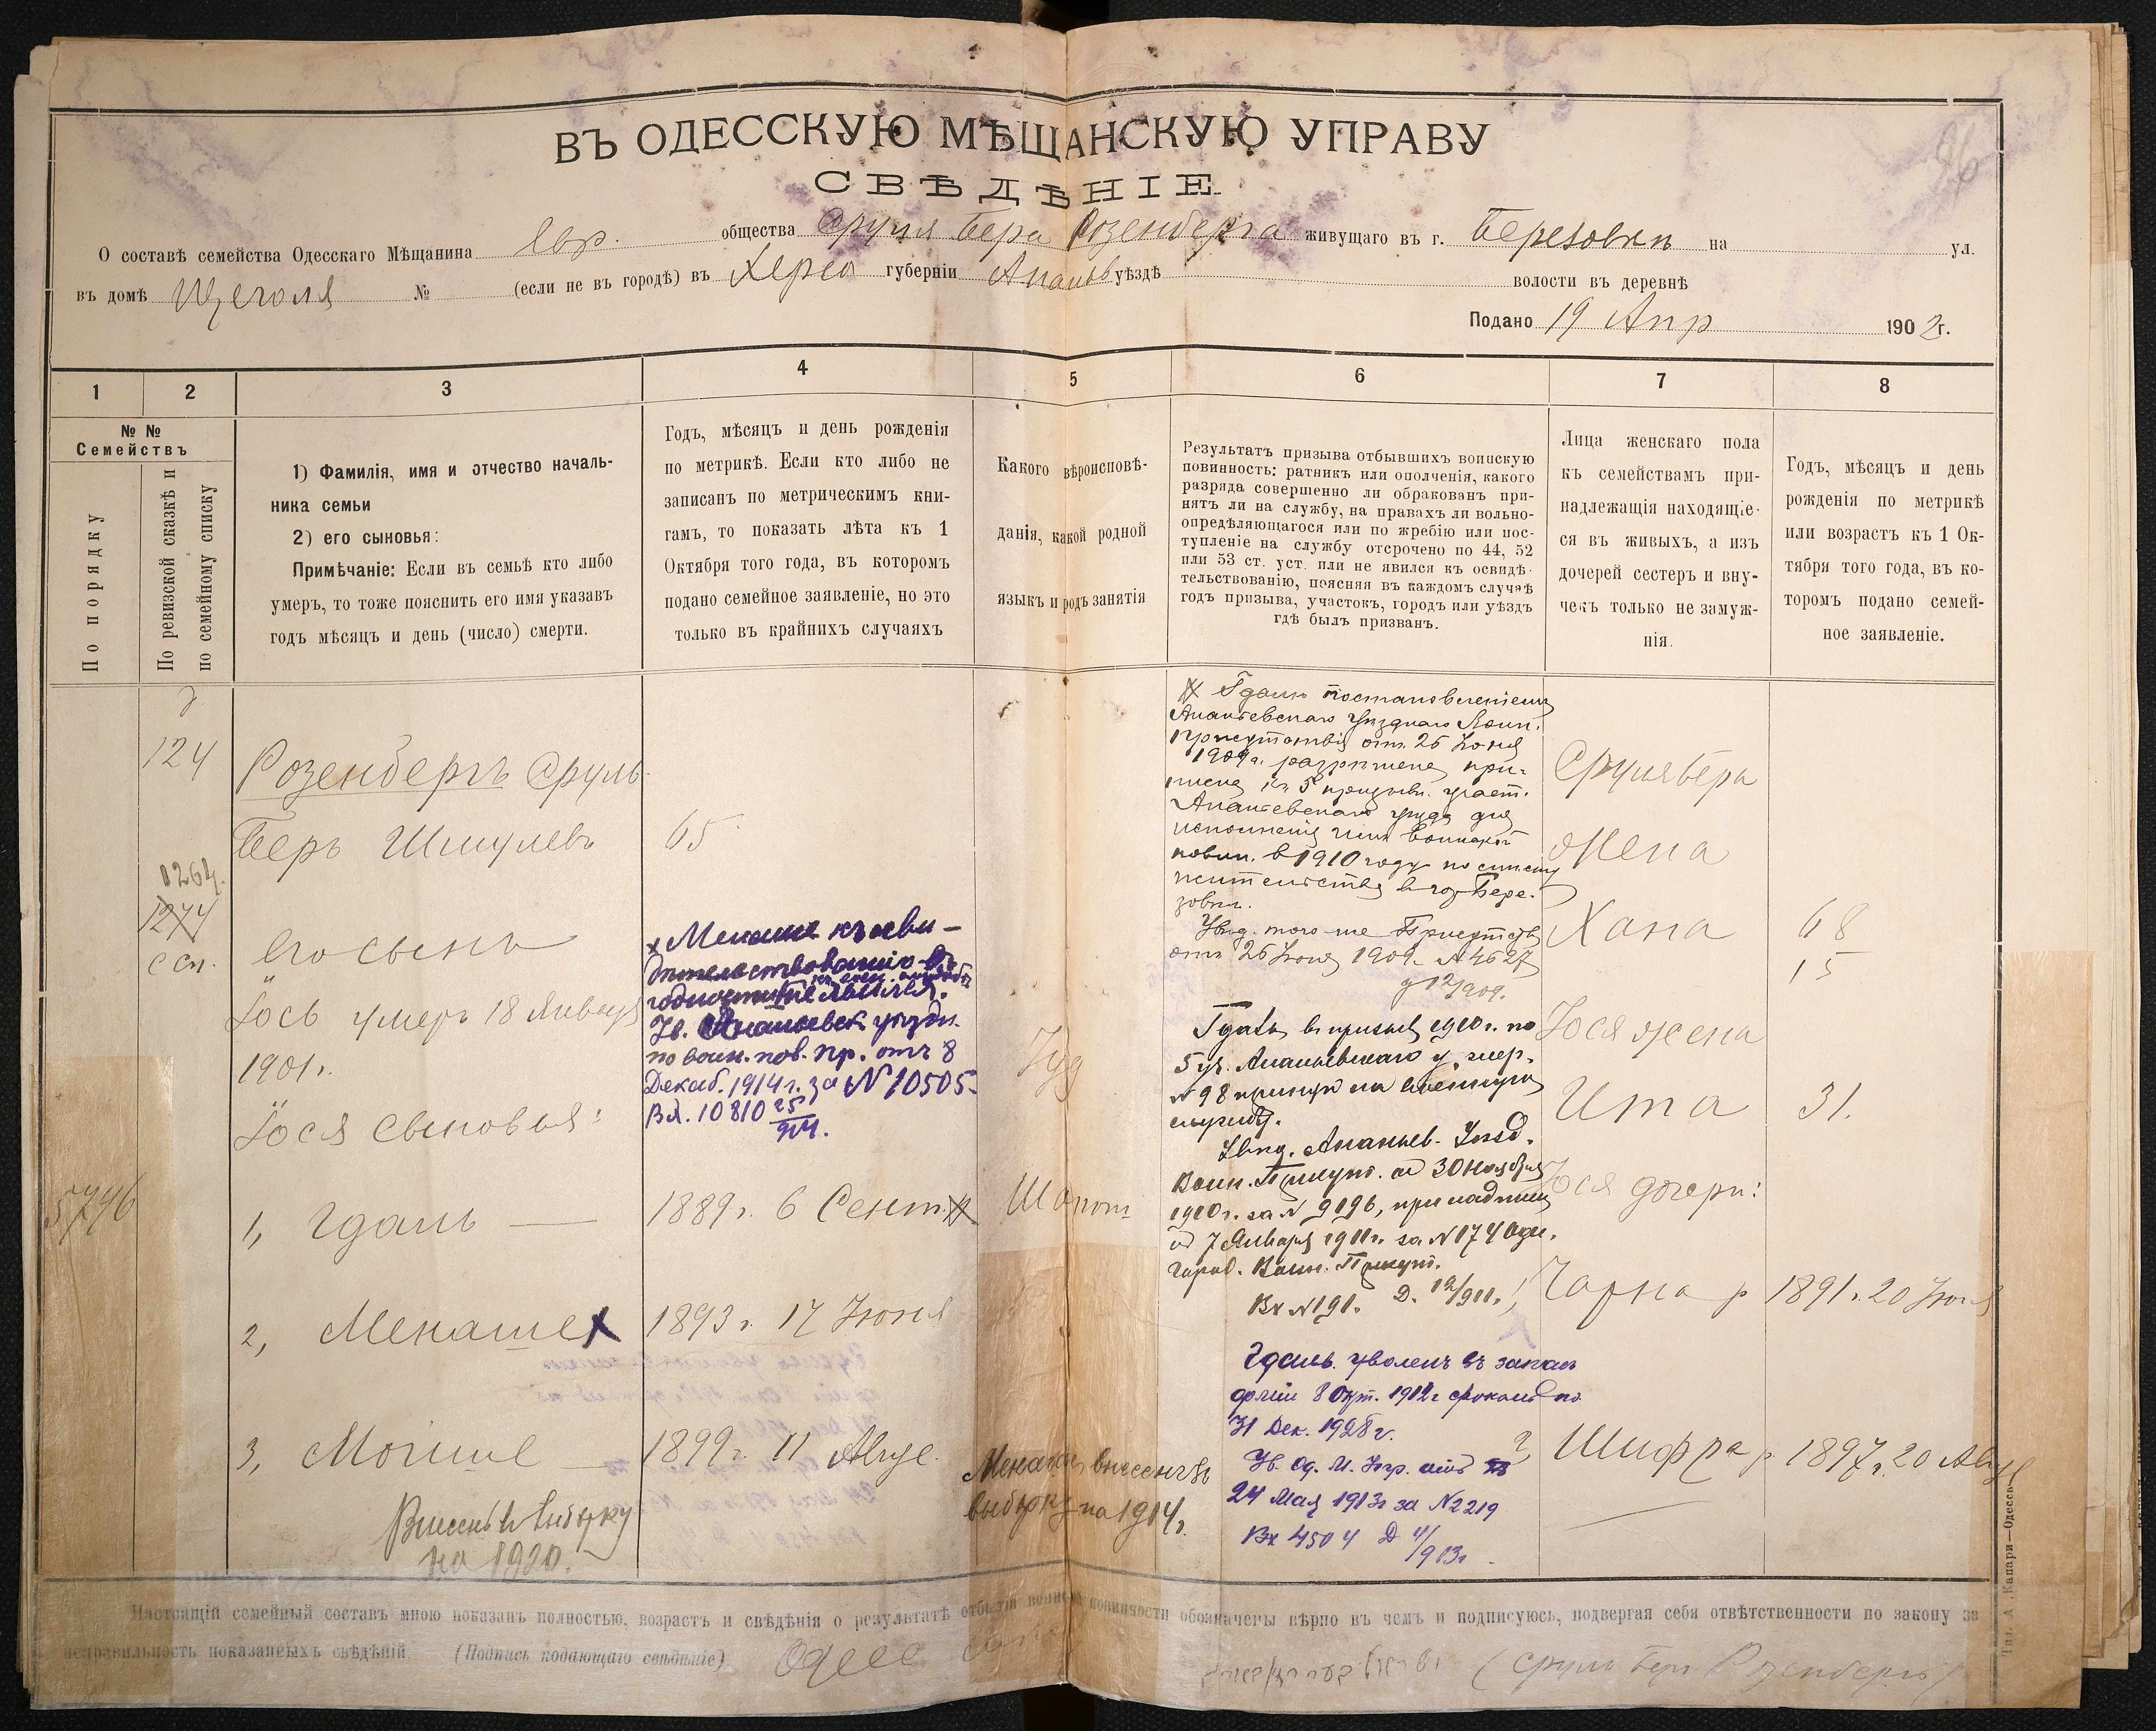 96
ВЪ ОДЕССКУЮ МѢЩАНСКУЮ УПРАВУ
СВѢДѢНІЕ
О составѣ семейства Одесскаго Мѣщанина Евр. общества Сруля Бера Розенберга живущаго въ г. Березовки на ул.
въ домѣ Щеголя № (если не въ городѣ) въ Херсо губерніи Ананьев уѣздѣ волости въ деревнѣ
Подано 19 Апр 1902г.
1 2 3 4 5 6 7 8
№ № Семействъ
По порядку
По ревизской сказкѣ и
по семейному списку
1) Фамилія, имя и отчество началь-
ника семьи
2) его сыновья:
Примѣчаніе: Если въ семьѣ кто либо
умеръ, то тоже пояснить его имя указавъ
годъ мѣсяцъ и день (число) смерти.
Годъ, мѣсяцъ и день рожденія
по метрикѣ. Если кто либо не
записанъ по метрическимъ кни-
гамъ, то показать лѣта къ 1
Октября того года, въ которомъ
подано семейное заявленіе, но это
только въ крайнихъ случаяхъ
Какого вѣроисповѣ-
данія, какой родной
языкъ и родъ занятія
Результатъ призыва отбывшихъ воинскую
повинность: ратникъ или ополченія, какого
разряда совершенно ли обракованъ при-
нятъ ли на службу, на правахъ ли вольно-
опредѣляющагося или по жребію или пос-
тупленіе на службу отсрочено по 44, 52
или 53 ст. уст. или не явился къ освидѣ-
тельствованію, поясняя въ каждомъ случаѣ
годъ призыва, участокъ, городъ или уѣздъ
гдѣ былъ призванъ.
Лица женскаго пола
къ семействамъ при-
надлежащія находящіе-
ся въ живыхъ, а изъ
дочерей сестеръ и вну-
чекъ только не замуж-
нія.
Годъ, мѣсяцъ и день
рожденія по метрикѣ
или возрастъ къ 1 Ок-
тября того года, въ ко-
торомъ подано семей-
ное заявленіе.
124
1264.
1274
с сп.
5746
Розенбергъ Сруль
Беръ Шмулевъ
65
Его сынъ
Іось умеръ 18 Января
1901г.
Іося сыновья:
1, Гдаль
1889г. 6 Сент.
2, Менаше х
1893г. 17 Іюня
3, Мошше
1899г. 11 Авгус.
Внесенъ в выборку
на 1920.
х Менаше къ осви-
дѣтельствованію
годности не явился.
Ув. Ананьевск уѣздн.
по воин. пов. пр. отъ 8
Декаб. 1914г. за N 10505.
Вх. 10810 25/914.
Іуд
Менаше внесенъ въ
выборку на 1914г.
Гдаль постановленіемъ
Ананьевскаго Уѣзднаго Воин.
Присутствія отъ 26 Іюня
1909г. разрѣшена при-
писка къ 5 призывн. участ.
Ананьевскаго уѣзда для
исполненія имъ воинской
повин. в 1910 году по
жительства в гор. Бере-
зовки.
Увѣд. того-же Присутств
отъ 26 Іюня 1909. N 4627
Д 12/909.
Гдаль въ призывъ 1910г. по
5 уч. Ананьевскаго у. жер.
N 98 принятъ на военную
службу.
Увѣд. Ананьев. Уѣзд.
Воин. Присут. от 30 Ноября
1910г. за N 9196, при надписи
от 7 Января 1911г. за N 174 Оде.
город. Воин. Присут.
Вх N 191. Д. 12/911.
Гдаль уволенъ въ запас
арміи 8 Окт. 1912г срокомъ по
31 Дек. 1928г.
Ув. Од. М. Упр. отъ
24 Мая 1913г за N 2219
Вх 4504 Д 4/913г
Сруля Бера
Жена
Хана 68
15
Іося жена
Ита 31.
Іося дочери:
1, Чарна р 1891г. 20 Іюня
2, Шифра р 1897г. 20 Авгус
Настоящій семейный составъ мною показанъ полностью, возрастъ и свѣдѣнія о результатѣ отбытія воинской повинности обозначены вѣрно въ чемъ и подписуюсь, подвергая себя отвѣтственности по закону за
неправильность показанныхъ свѣдѣній. (Подпись подающаго свѣдѣніе)
(Сруль Беръ Розенбергъ)
Тип. А. Канари—Одесса